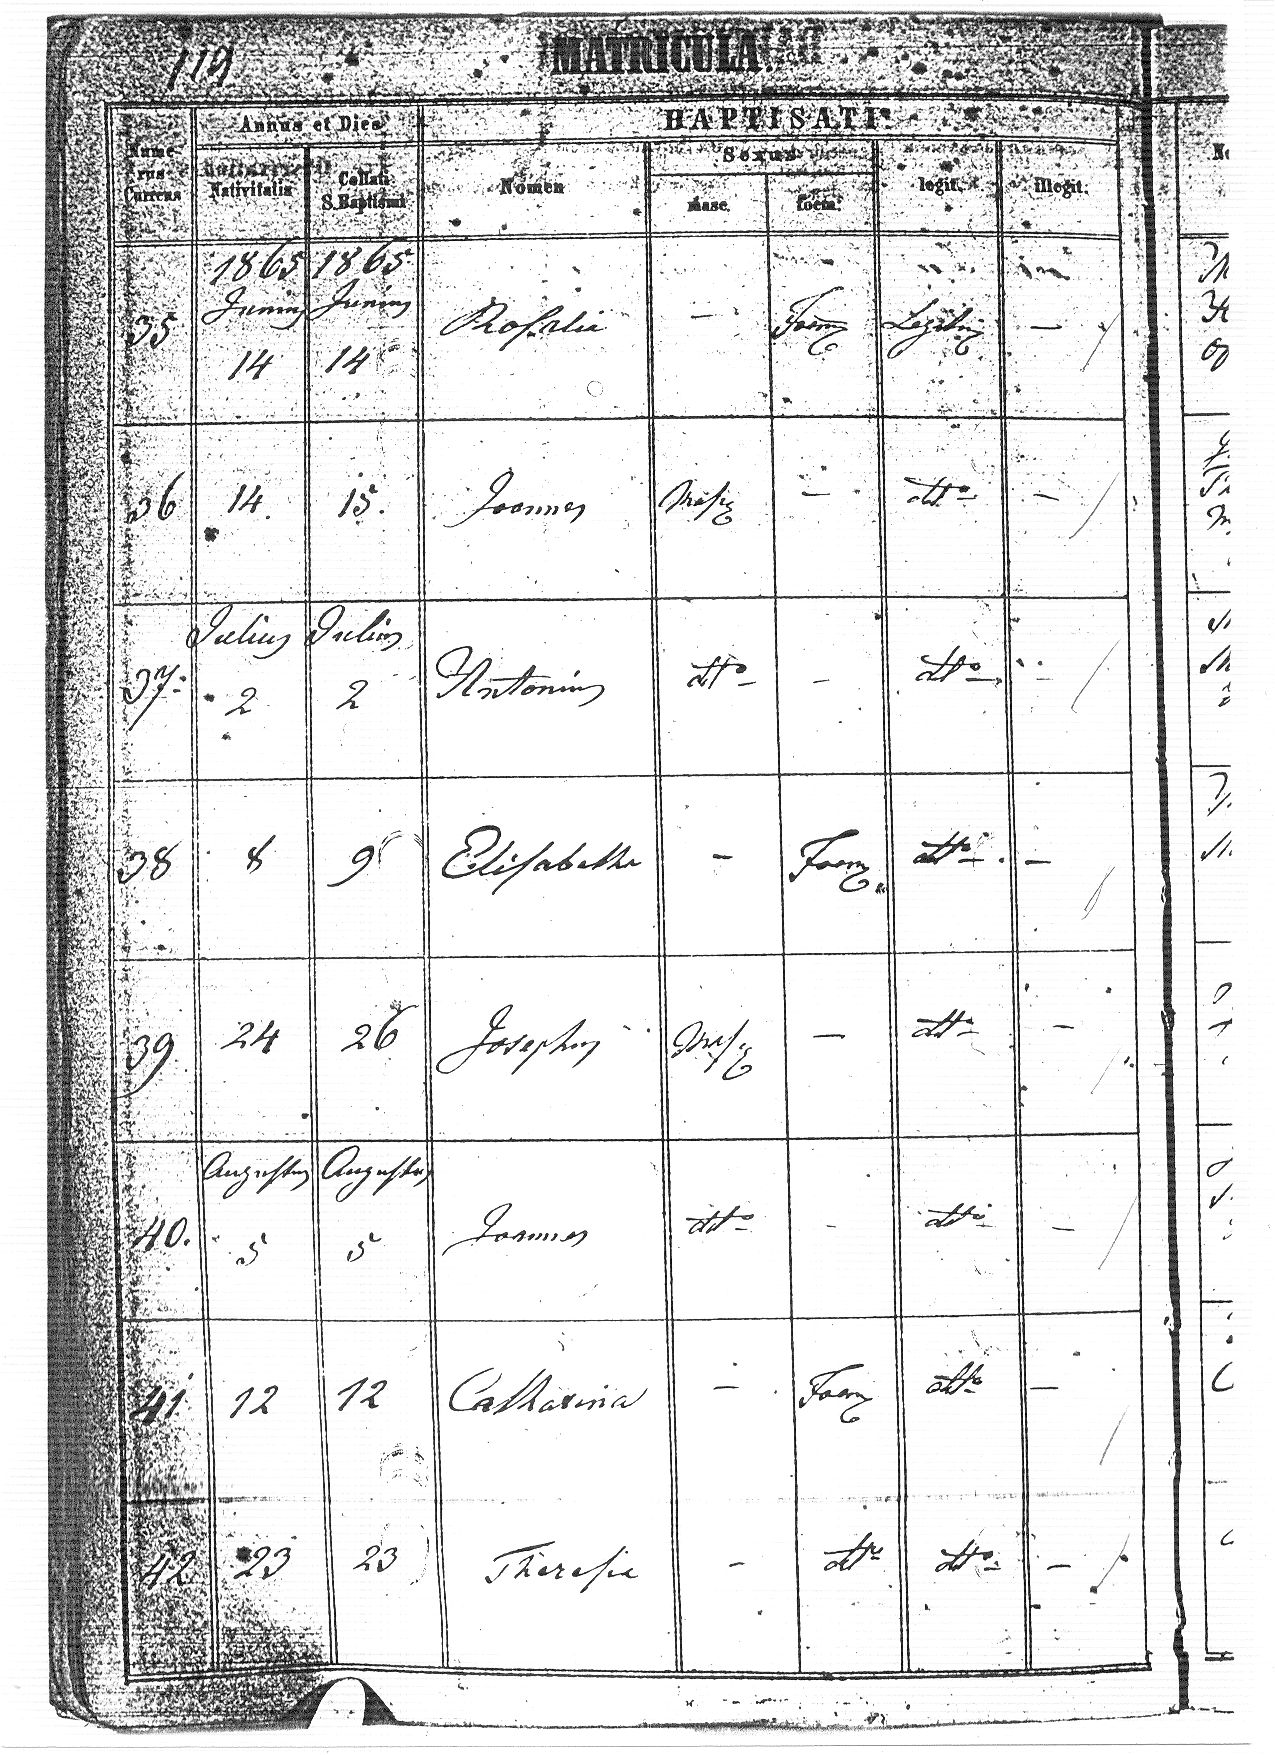 119
MATRICULA
Annus et Dies BAPTISATI
Nume-
rus
Currens
Nativitatis
Collati
S. Baptismi
Nomen
Sexus
masc. foem.
legit. illegit.
1865 1865
Junius Junius
35 Rosalia — Foem Legitim —
14 14
36 14 15. Joannes Masc — dtto —
Julius Julius
37. 2 2 Antonius dtto — dtto —
38 8 9 Elisabetha — Foem dtto —
39 24 26 Josephus Masc — dtto —
Augustus Augustus
40. 5 5 Joannes dtto - dtto —
41 12 12 Catharina — Foem dtto —
42 23 23 Theresia — dtto dtto —